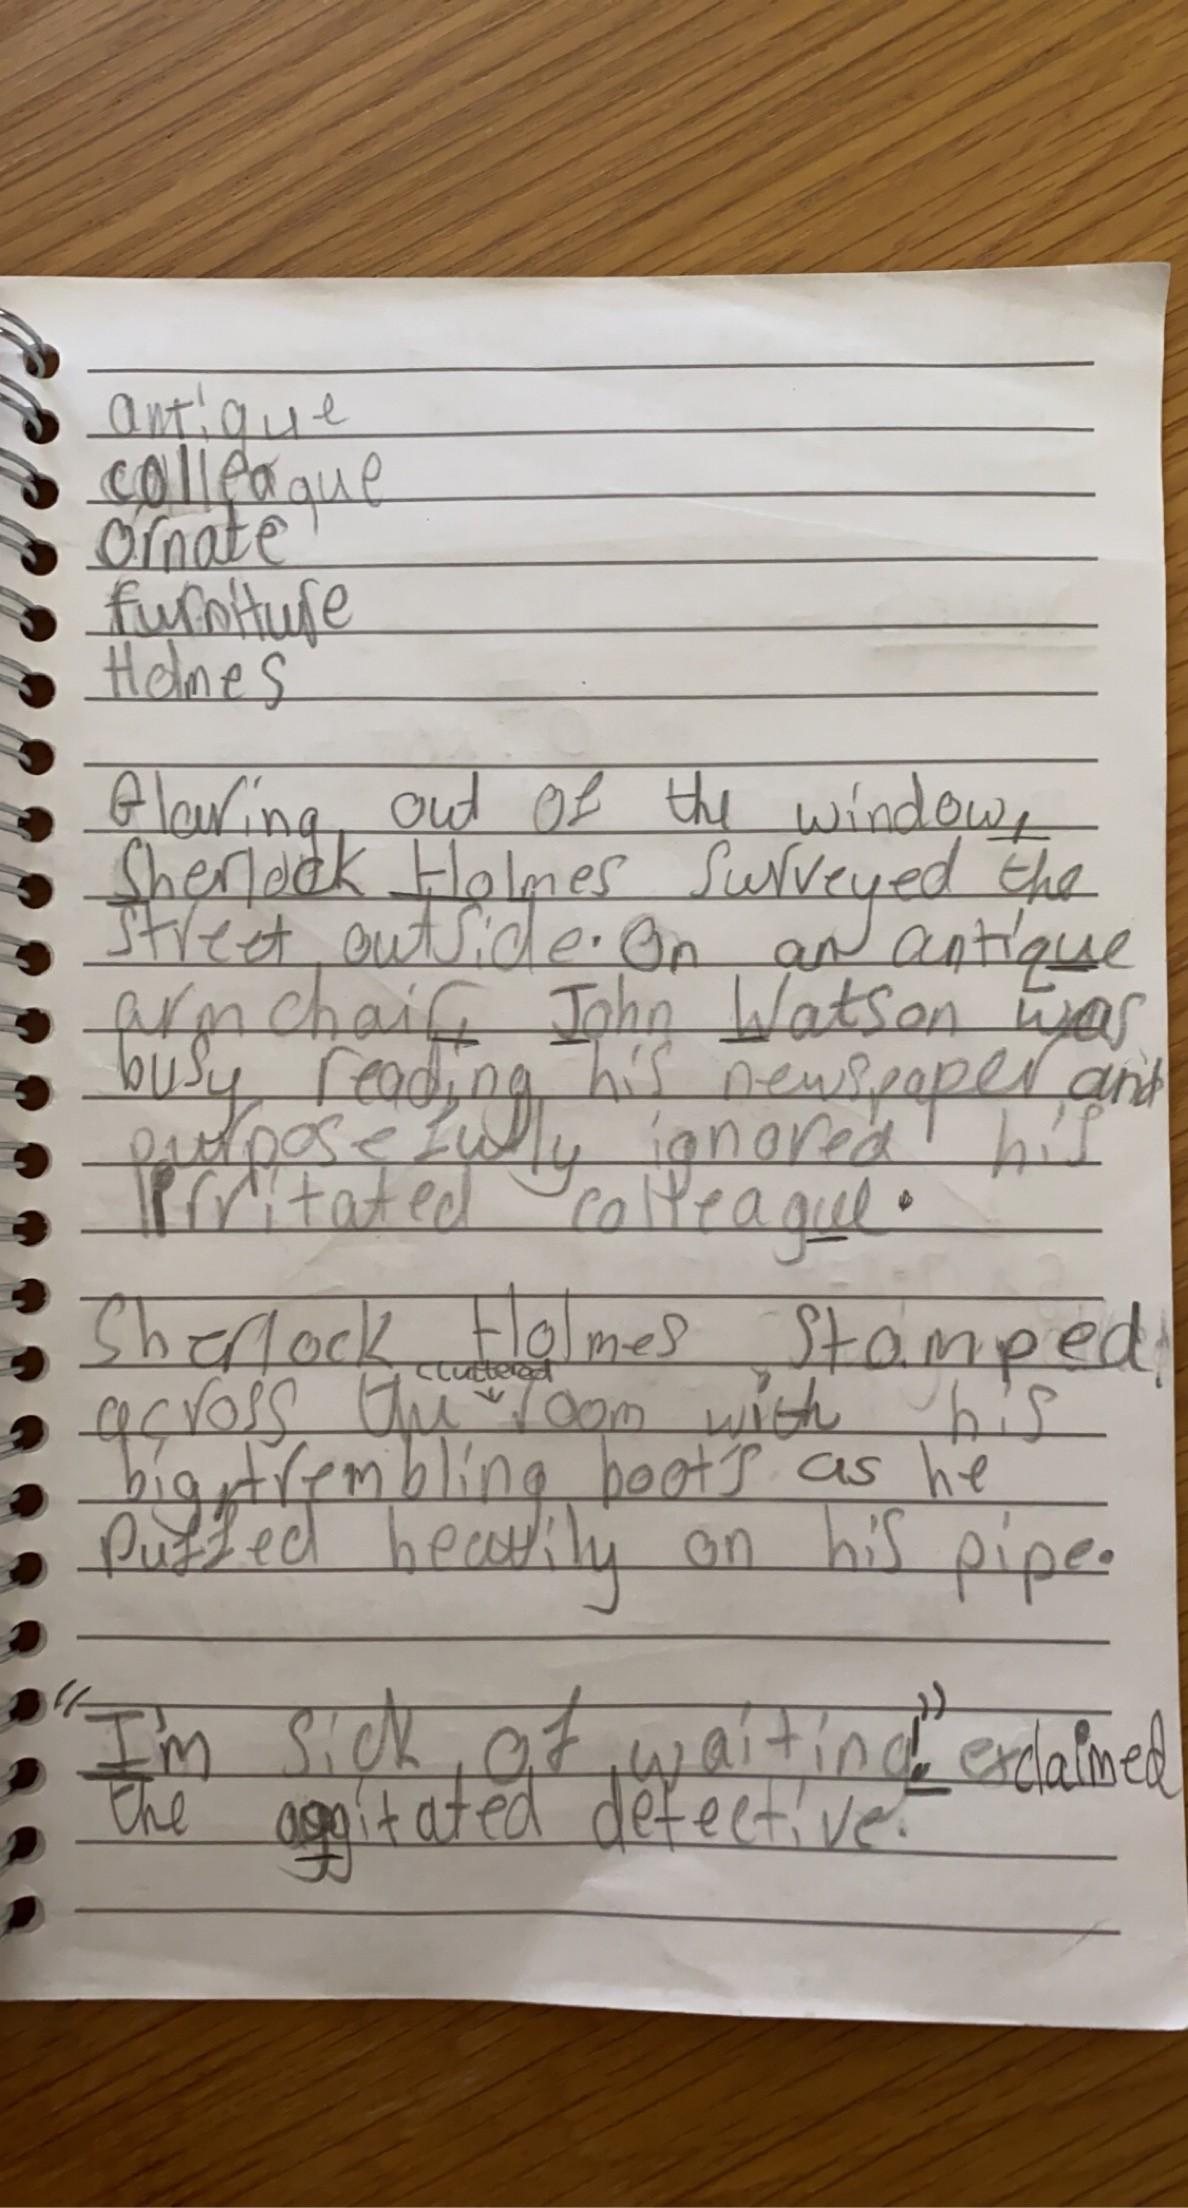 antique
colleague
ornate
furniture
Holmes
Glaring out of the window,
Sherlock Holmes surveyed the
street outside. On an antique
armchair, John Watson was
busy reading his newspaper and
purposefully ignored his
irritated colleague.
Sherlock Holmes stamped
cluttered
across the room with his
big, trembling boots as he
puffed heavily on his pipe.
"I'm sick of waiting!" exclaimed
the aggitated detective.